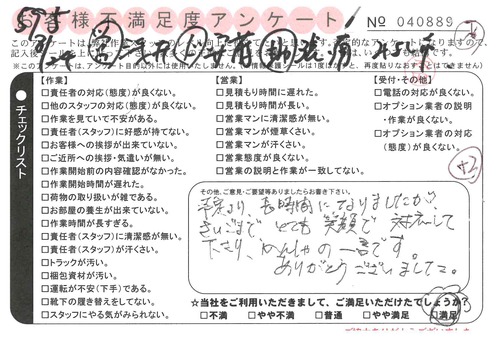 お客様不満足度アンケート
No 040889
チェックリスト
【作業】
□責任者の対応(態度)が良くない。
□他のスタッフの対応(態度)が良くない。
□作業を見ていて不安がある。
□責任者(スタッフ)に好感が持てない。
□お客様への挨拶が出来ていない。
□ご近所への挨拶・気遣いが無い。
□作業開始前の内容確認がなかった。
□作業開始時間に遅れた。
□荷物の取り扱いが雑である。
□お部屋の養生が出来ていない。
□作業時間が長すぎる。
□責任者(スタッフ)に清潔感が無い。
□責任者(スタッフ)が汗くさい。
□トラックが汚い。
□梱包資材が汚い。
□運転が不安(下手)である。
□靴下の履き替えをしてない。
□スタッフにやる気がみられない。
【営業】
□見積もり時間に遅れた。
□見積もり時間が長い。
□営業マンに清潔感が無い。
□営業マンが煙草くさい。
□営業マンが汗くさい。
□営業態度が良くない。
□営業の説明と作業が一致してない。
【受付・その他】
□電話の対応が良くない。
□オプション業者の説明
・作業が良くない。
□オプション業者の対応
(態度)が良くない。
その他、ご意見・ご要望等ありましたらお書き下さい。
予定より、長時間になりましたが、
さいごまで とても 笑顔で 対応して
下さり、かんしゃの一言です。
ありがとうございました。
☆当社をご利用いただきまして、ご満足いただけたでしょうか?
□不満 □やや不満 □普通 □やや満足 □満足